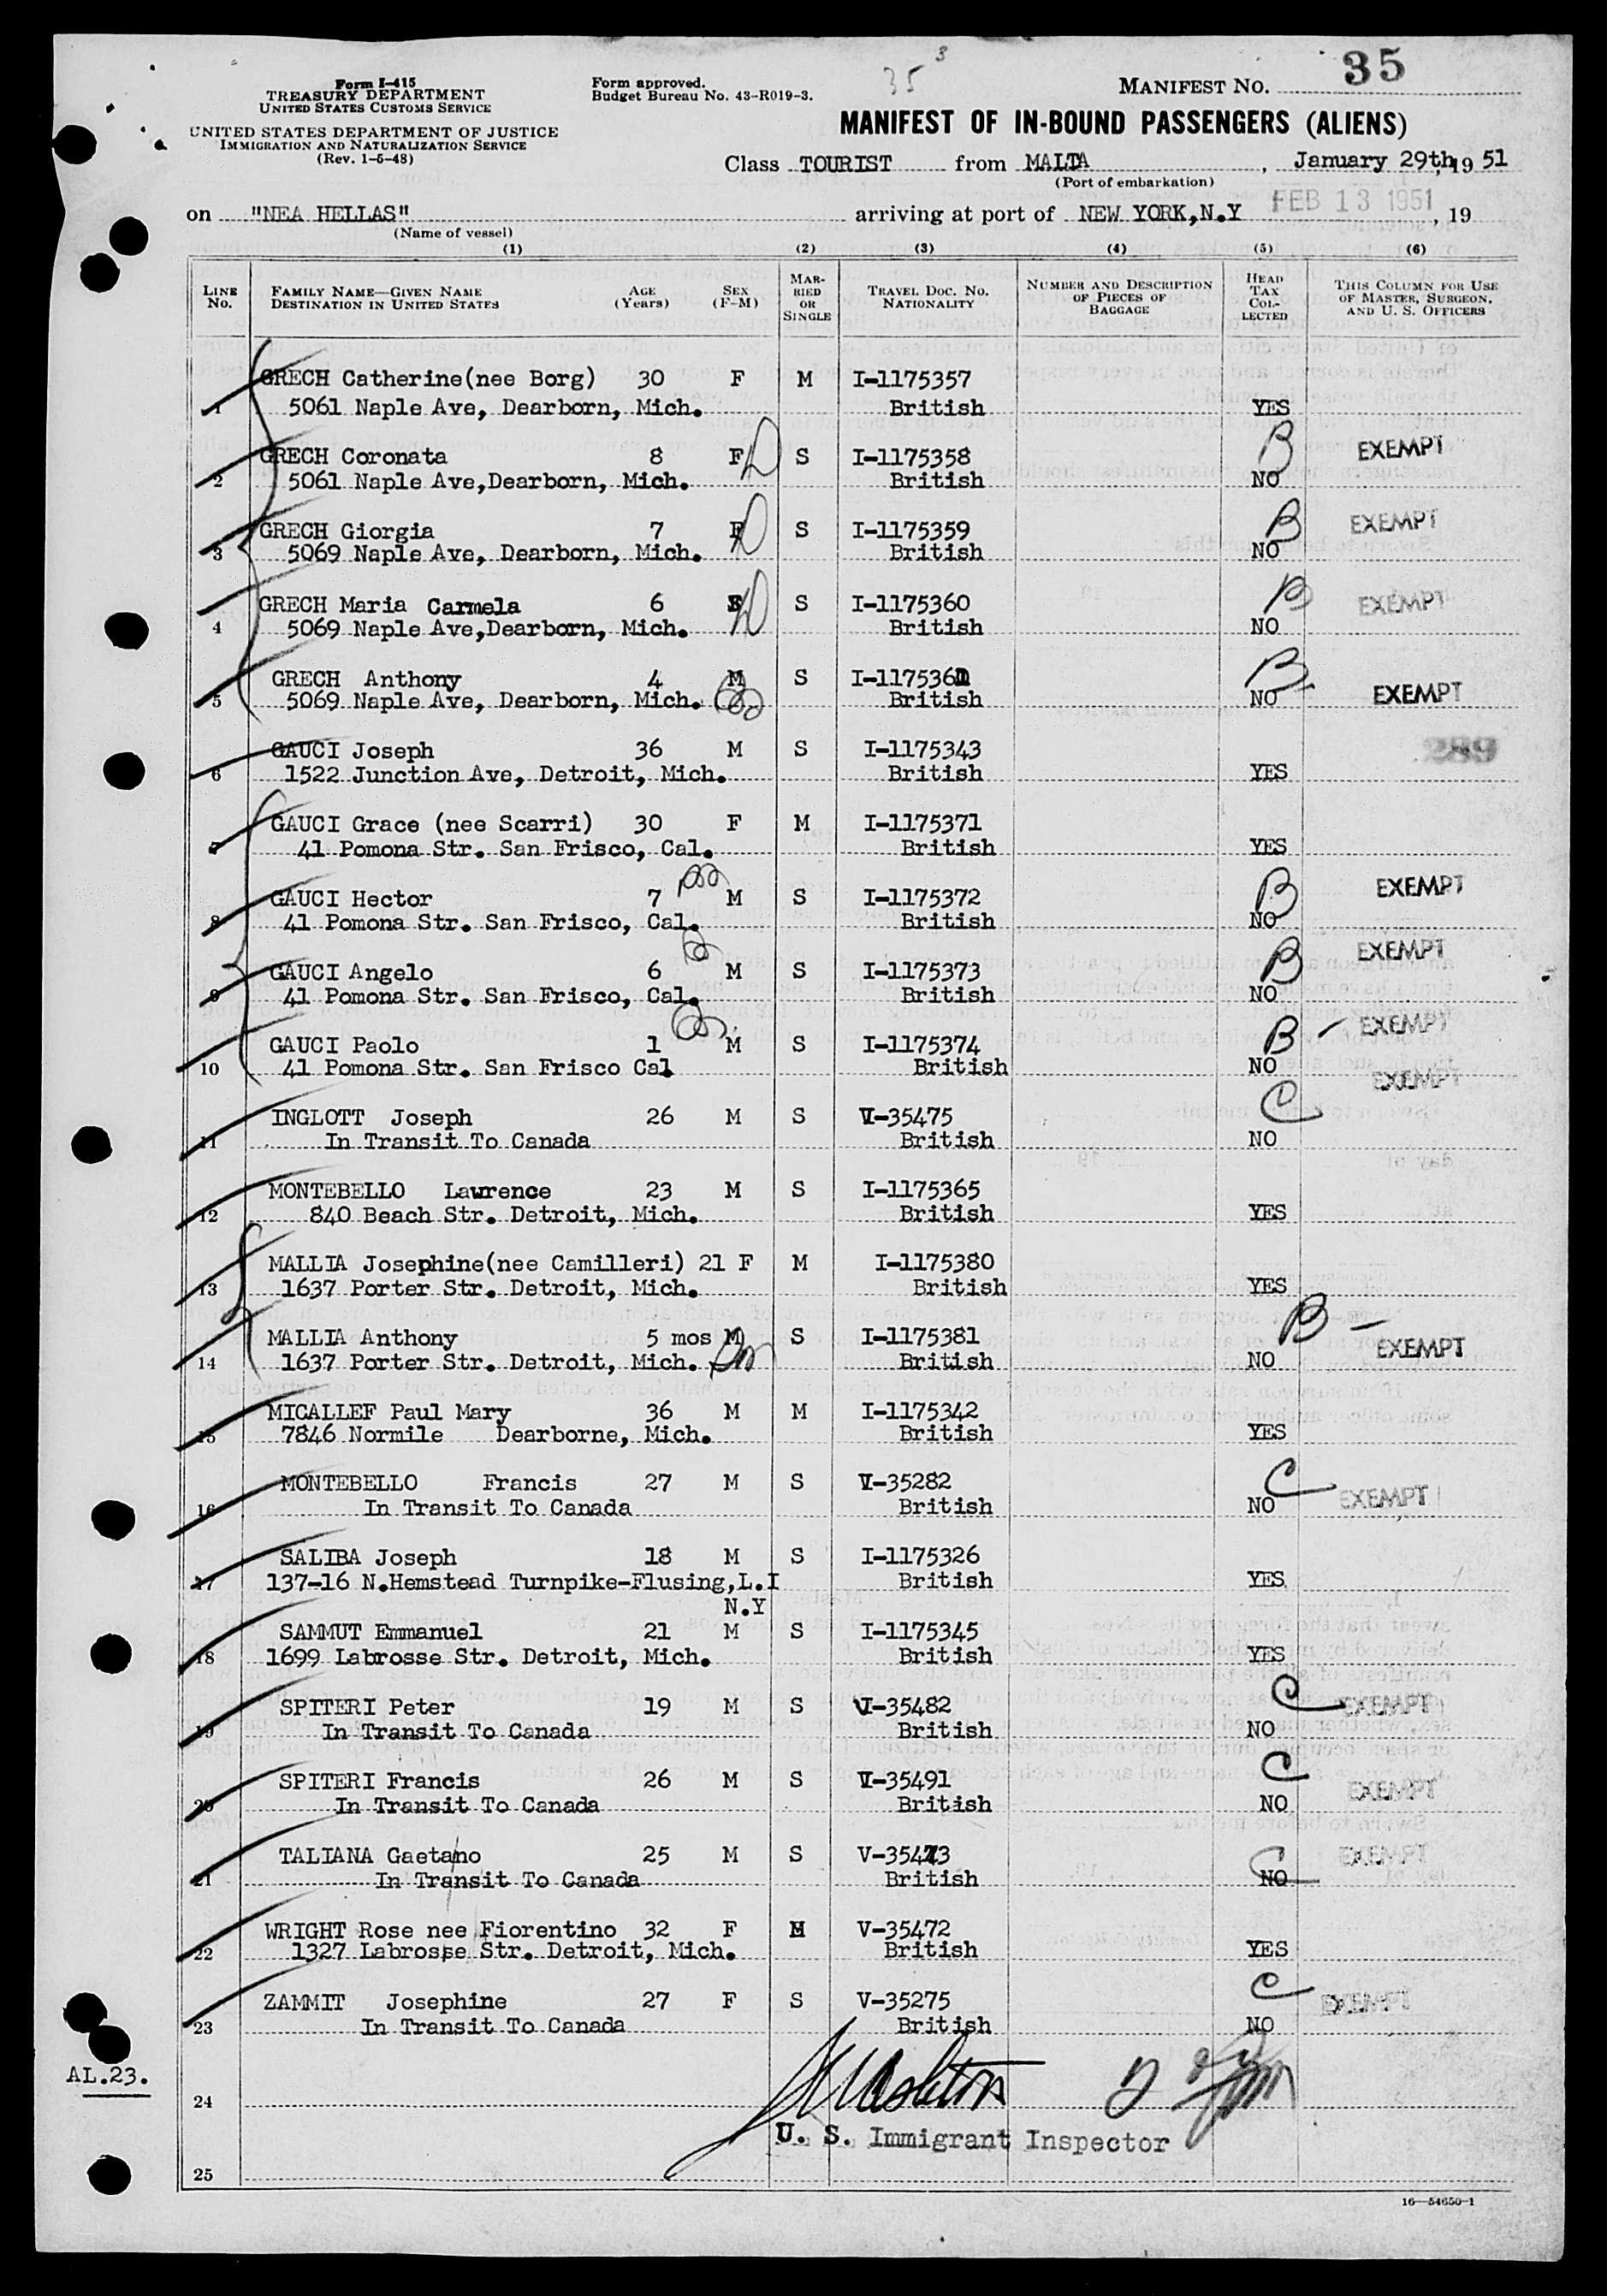 35 3
Form I-415
TREASURY DEPARTMENT
UNITED STATES CUSTOMS SERVICE
UNITED STATES DEPARTMENT OF JUSTICE
IMMIGRATION AND NATURALIZATION SERVICE
(Rev. 1-5-48)
Form approved.
Budget Bureau No. 43-R019-3.
MANIFEST NO. 35
MANIFEST OF IN-BOUND PASSENGERS (ALIENS)
Class TOURIST from MALTA, January 29th, 19 51
(Port of embarkation)
on "NEA HELLAS" arriving at port of NEW YORK, N.Y FEB 13 1951, 19
(Name of vessel)
(1) (2) (3) (4) (5) (6)
LINE No. FAMILY NAME—GIVEN NAME DESTINATION IN UNITED STATES AGE (Years) SEX (F-M) MARRIED OR SINGLE TRAVEL DOC. NO. NATIONALITY NUMBER AND DESCRIPTION OF PIECES OF BAGGAGE HEAD TAX COLLECTED THIS COLUMN FOR USE OF MASTER, SURGEON, AND U. S. OFFICERS
GRECH Catherine(nee Borg) 30 F M I-1175357
1 5061 Naple Ave, Dearborn, Mich. British YES
GRECH Coronata 8 F S I-1175358 B EXEMPT
2 5061 Naple Ave,Dearborn, Mich. British NO
GRECH Giorgia 7 F S I-1175359 B EXEMPT
3 5069 Naple Ave, Dearborn, Mich. British NO
GRECH Maria Carmela 6 S I-1175360 B EXEMPT
4 5069 Naple Ave,Dearborn, Mich. British NO
GRECH Anthony 4 M S I-1175361 B
5 5069 Naple Ave, Dearborn, Mich. British NO EXEMPT
GAUCI Joseph 36 M S I-1175343 289
6 1522 Junction Ave, Detroit, Mich. British YES
GAUCI Grace (nee Scarri) 30 F M I-1175371
7 41 Pomona Str. San Frisco, Cal. British YES
GAUCI Hector 7 M S I-1175372 B EXEMPT
8 41 Pomona Str. San Frisco, Cal. British NO
GAUCI Angelo 6 M S I-1175373 B EXEMPT
9 41 Pomona Str. San Frisco, Cal. British NO
GAUCI Paolo 1 M S I-1175374 B - EXEMPT
10 41 Pomona Str. San Frisco Cal British NO EXEMPT
INGLOTT Joseph 26 M S V-35475 C
11 In Transit To Canada British NO
MONTEBELLO Lawrence 23 M S I-1175365
12 840 Beach Str. Detroit, Mich. British YES
MALLIA Josephine(nee Camilleri) 21 F M I-1175380
13 1637 Porter Str. Detroit, Mich. British YES
MALLIA Anthony 5 mos M S I-1175381 B - EXEMPT
14 1637 Porter Str. Detroit, Mich. British NO
MICALLEF Paul Mary 36 M M I-1175342
15 7846 Normile Dearborne, Mich. British YES
MONTEBELLO Francis 27 M S V-35282 C EXEMPT
16 In Transit To Canada British NO
SALIBA Joseph 18 M S I-1175326
17 137-16 N.Hemstead Turnpike-Flusing,L.I British YES
N.Y
SAMMUT Emmanuel 21 M S I-1175345
18 1699 Labrosse Str. Detroit, Mich. British YES
SPITERI Peter 19 M S V-35482 C EXEMPT
19 In Transit To Canada British NO
SPITERI Francis 26 M S V-35491 C EXEMPT
20 In Transit To Canada British NO
TALIANA Gaetano 25 M S V-35473 C EXEMPT
21 In Transit To Canada British NO
WRIGHT Rose nee Fiorentino 32 F M V-35472
22 1327 Labrosse Str. Detroit, Mich. British YES
ZAMMIT Josephine 27 F S V-35275 C EXEMPT
23 In Transit To Canada British NO
AL.23.
24
U. S. Immigrant Inspector
25
16—54650-1